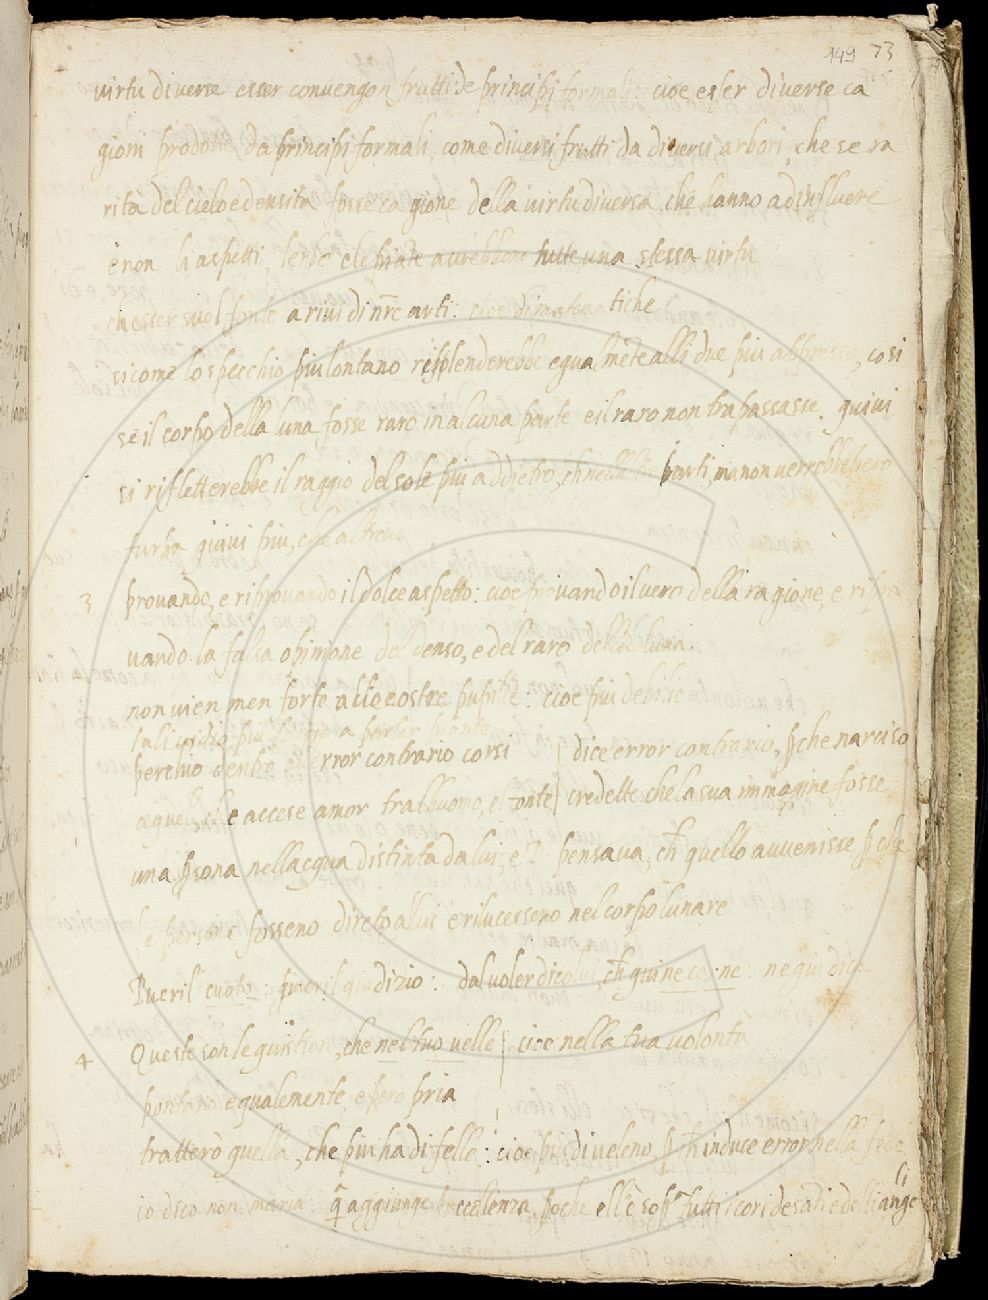 149 73
virtu diverse esser convengon frutti de principi formali: cioe esser diverse ca
gioni prodotte da principi formali, come diversi frutti da diversi arbori, che se ra
rita del cielo e densita fosse cagione della virtu diversa che hanno ad influere
e non li aspetti, l'erbe e le piāte avrebbono tutte una stessa virtu
ch'esser suol fonte a rivi di nr̄e arti: cioe di matematiche
si come lo specchio piu lontano risplenderebbe egualmēte alli due piu appresso, cosi
se il corpo della luna fosse raro in alcuna parte e il raro non trapassasse, quivi
si rifletterebbe il raggio del sole piu addietro, ch nell' parti, ma non verrebbe pero
turba quivi piu, che altrove
3 provando, e riprovando il dolce aspetto: cioe provando il vero della ragione, e ripro
vando la falsa opinione del denso, e del raro della luna.
non vien men forte alle nostre pupille: cioe piu debile
tali vidio piu faccie a parlar pronte
perchio dentro all error contrario corsi dice error contrario, p che narciso
a quel che accese amor tra l'uomo, e 'l fonte credette che la sua immagine fosse
una psona nell'acqua distinta da lui, e pensava, ch quello avvenisse p che
le persone fosseno dirieto a lui e rilucesseno nel corpo lunare
Pueril cuoto: pueril giudizio: dal voler di colui, ch qui ne cerne:
4 Queste son le quistion, che nel tuo velle cioe nella tua volonta
pontano equalemente, e pero pria
trattero quella, che piu ha di felle: cioe piu di veleno, p ch induce error nella fede
io dico non maria: q aggiunge eccellenza, poche ell'e sop̄ tutti i cori de santi e delli ange
li